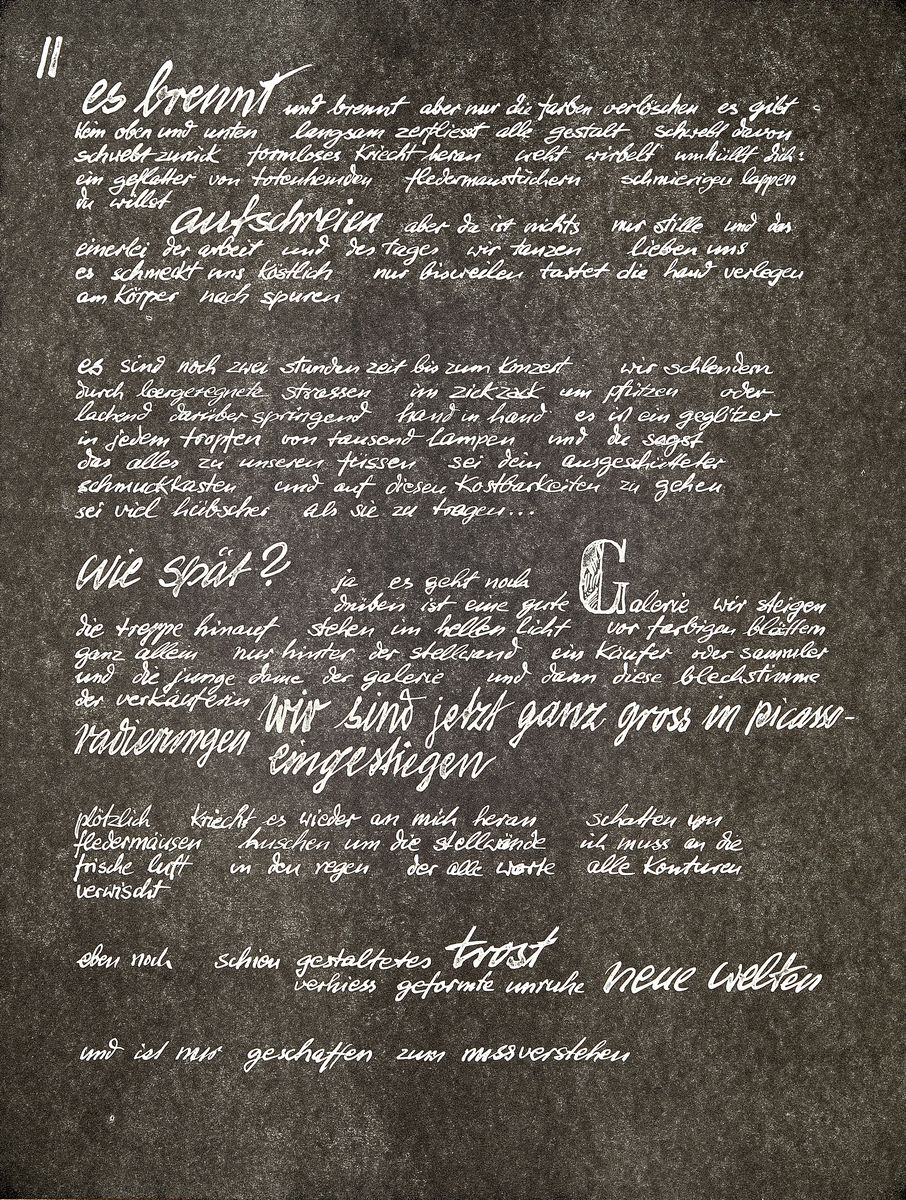 11
es brennt und brennt aber nur die farben verlöschen es gibt
kein oben und unten langsam zerfliesst alle gestalt schwebt davon
schwebt zurück formloses kriecht heran weht wirbelt umhüllt dich:
ein geflatter von totenhemden fledermaustüchern schmierigen lappen
du willst
aufschreien aber da ist nichts nur stille und das
einerlei der arbeit und des tages wir tanzen lieben uns
es schmeckt uns köstlich nur bisweilen tastet die hand verlegen
am körper nach spuren
es sind noch zwei stunden zeit bis zum konzert wir schlendern
durch leergeregnete strassen im zickzack um pfützen oder
lachend darüber springend hand in hand es ist ein geglitzer
in jedem tropfen von tausend lampen und du sagst
das alles zu unseren füssen sei dein ausgeschütteter
schmuckkasten und auf diesen kostbarkeiten zu gehen
sei viel hübscher als sie zu tragen...
wie spät? ja es geht noch
drüben ist eine gute Galerie wir steigen
die treppe hinauf stehen im hellen licht vor farbigen blättern
ganz allein nur hinter der stellwand ein käufer oder sammler
und die junge dame der galerie und dann diese blechstimme
der verkäuferin wir sind jetzt ganz gross in picasso-
radierungen eingestiegen
plötzlich kriecht es wieder an mich heran schatten von
fledermäusen huschen um die stellwände ich muss an die
frische luft in den regen der alle worte alle konturen
verwischt
eben noch schien gestaltetes trost
verhiess geformte unruhe neue welten
und ist nur geschaffen zum missverstehen